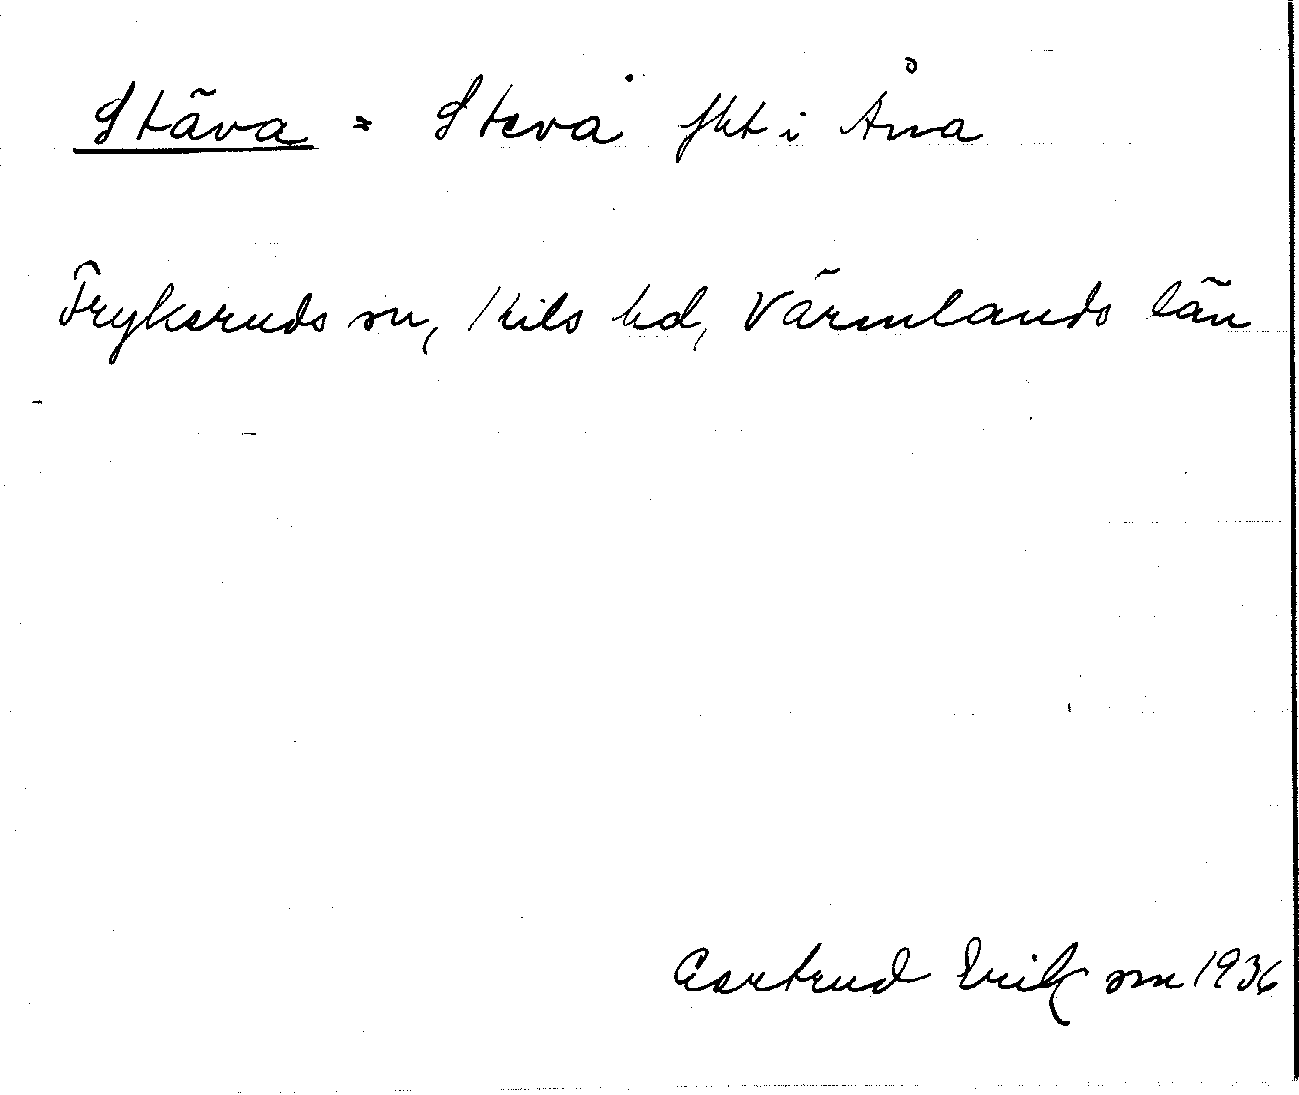 Stäva = Steva fkt i Åna
Fryksruds sn, Kils hd, Värmlands län
Gertrud Erikson 1936